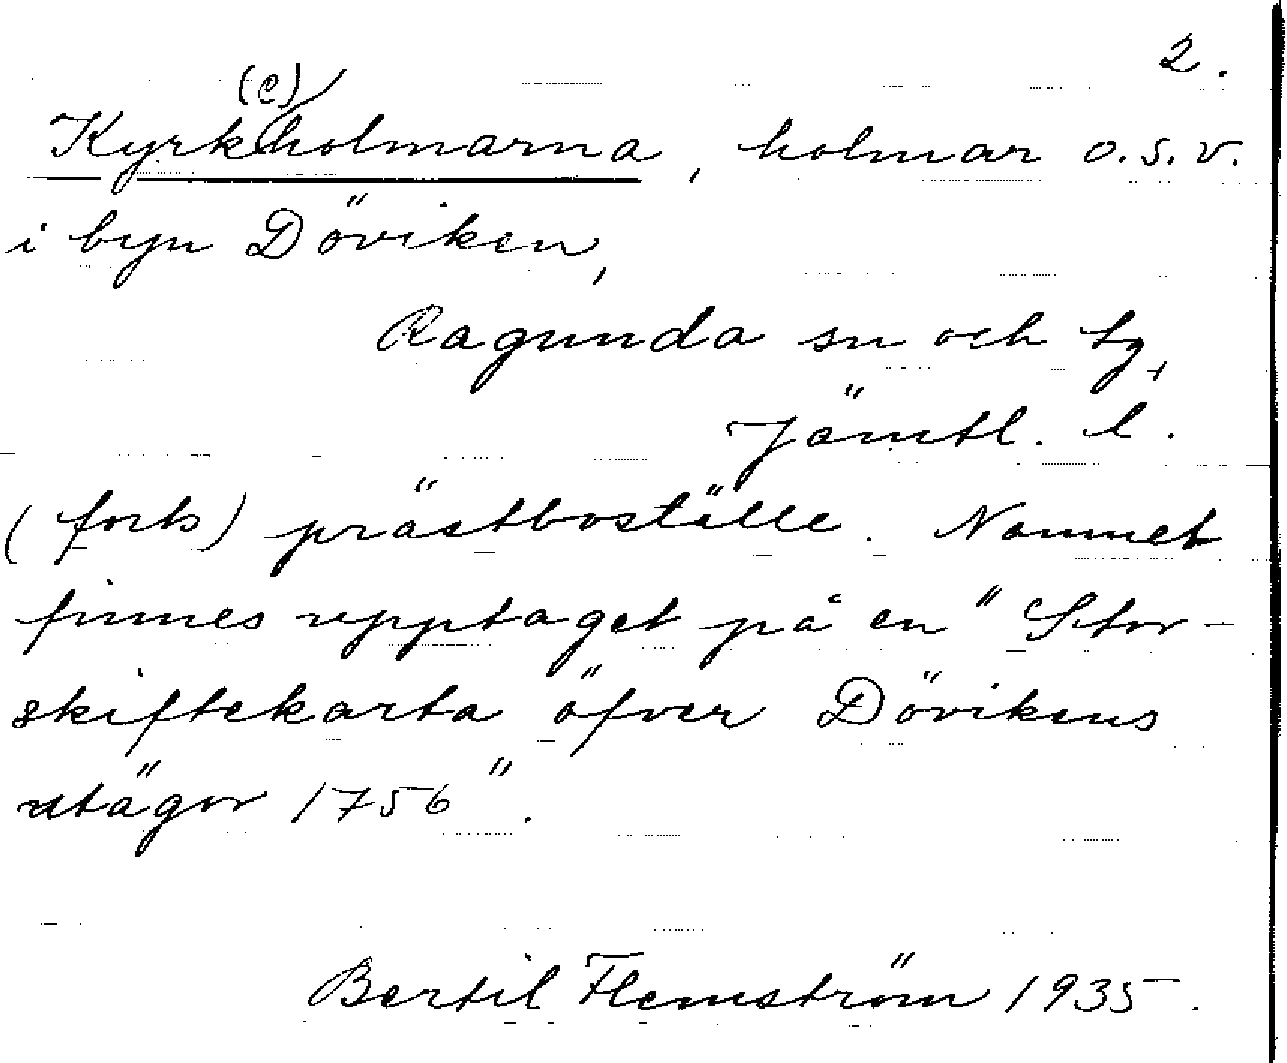 2.
Kyrk(e)holmarna, holmar o.s.v.
i byn Döviken,
Ragunda sn och tg,
Jämtl. l.
(forts) prästboställe. Namnet
finnes upptaget på en "Stor-
skiftekarta öfver Dövikens
utägor 1756".
Bertil Flemström 1935.